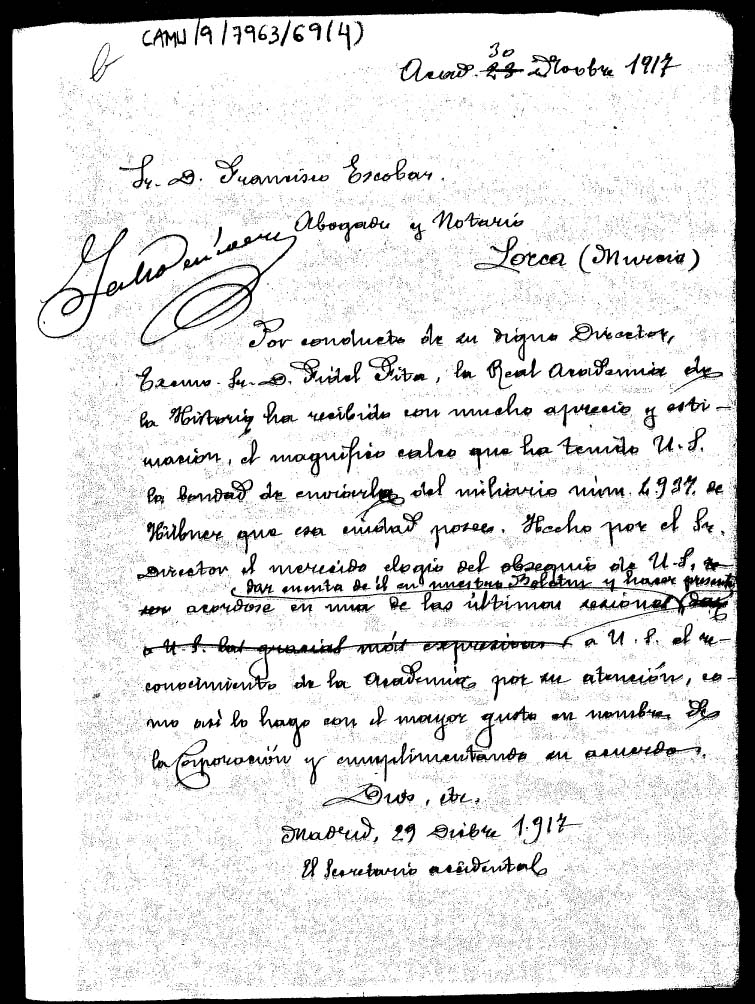 CAMU/9/7963/69(4)
Acad. 30 23 Novbre 1917
Sr. D. Francisco Escobar.
Abogado y Notario
Lorca (Murcia)
Por conducto de su digno Director,
Excmo. Sr. D. Fidel Fita, la Real Academia de
la Historia ha recibido con mucho aprecio y esti-
mación, el magnífico calco que ha tenido U.S.
la bondad de enviarla del miliario núm. 4.937. de
Hübner que esa ciudad posee. Hecho por el Sr.
Director el merecido elogio del obsequio de U.S,
dar cuenta de él en nuestro Boletin y hacer presente
acordose en una de las últimas sesiones
a U.S. las gracias más expresivas a U.S. el re-
conocimiento de la Academia por su atención, co-
mo así lo hago con el mayor gusto en nombre de
la Corporación y cumplimentando su acuerdo.
Dios, etc.
Madrid, 29 Dicbre 1.917
El Secretario accidental